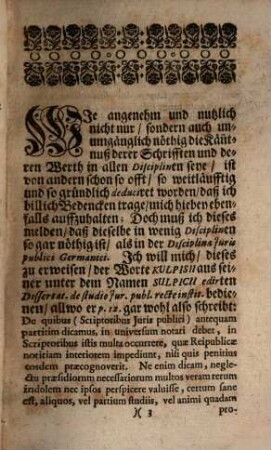 WIe angenehm und nutzlich
nicht nur / sondern auch un-
umgänglich nöthig die Känt-
nuß derer Schrifften und de-
ren Werth in allen Disciplinen seye / ist
von andern schon so offt / so weitläufftig
und so gründlich deduciret worden / daß ich
billich Bedencken trage / mich hieben eben-
falls auffzuhalten: Doch muß ich dieses
melden / daß dieselbe in wenig Disciplinen
so gar nöthig ist / als in der Disciplina Juris
publici Germanici. Ich will mich / dieses
zu erweisen / der Worte KULPISII aus sei-
ner unter dem Namen SULPICII edirten
Dissertat. de studio jur. publ. recte instit. bedie-
nen / allwo er p. 12. gar wohl also schreibt:
De quibus (Scriptoribus Juris publici) antequam
partitim dicamus, in universum notari debet, in
Scriptoribus istis multa occurrere, quæ Reipublicæ
notitiam interiorem impediunt, nisi quis penitius
eosdem præcognoverit. Ne enim dicam, negle-
ctu præsidiorum necessariorum multos veram rerum
indolem nec ipsos perspicere valuisse, certum sane
est, aliquos, vel partium studiis, vel animi quadam
)( 3 pro-